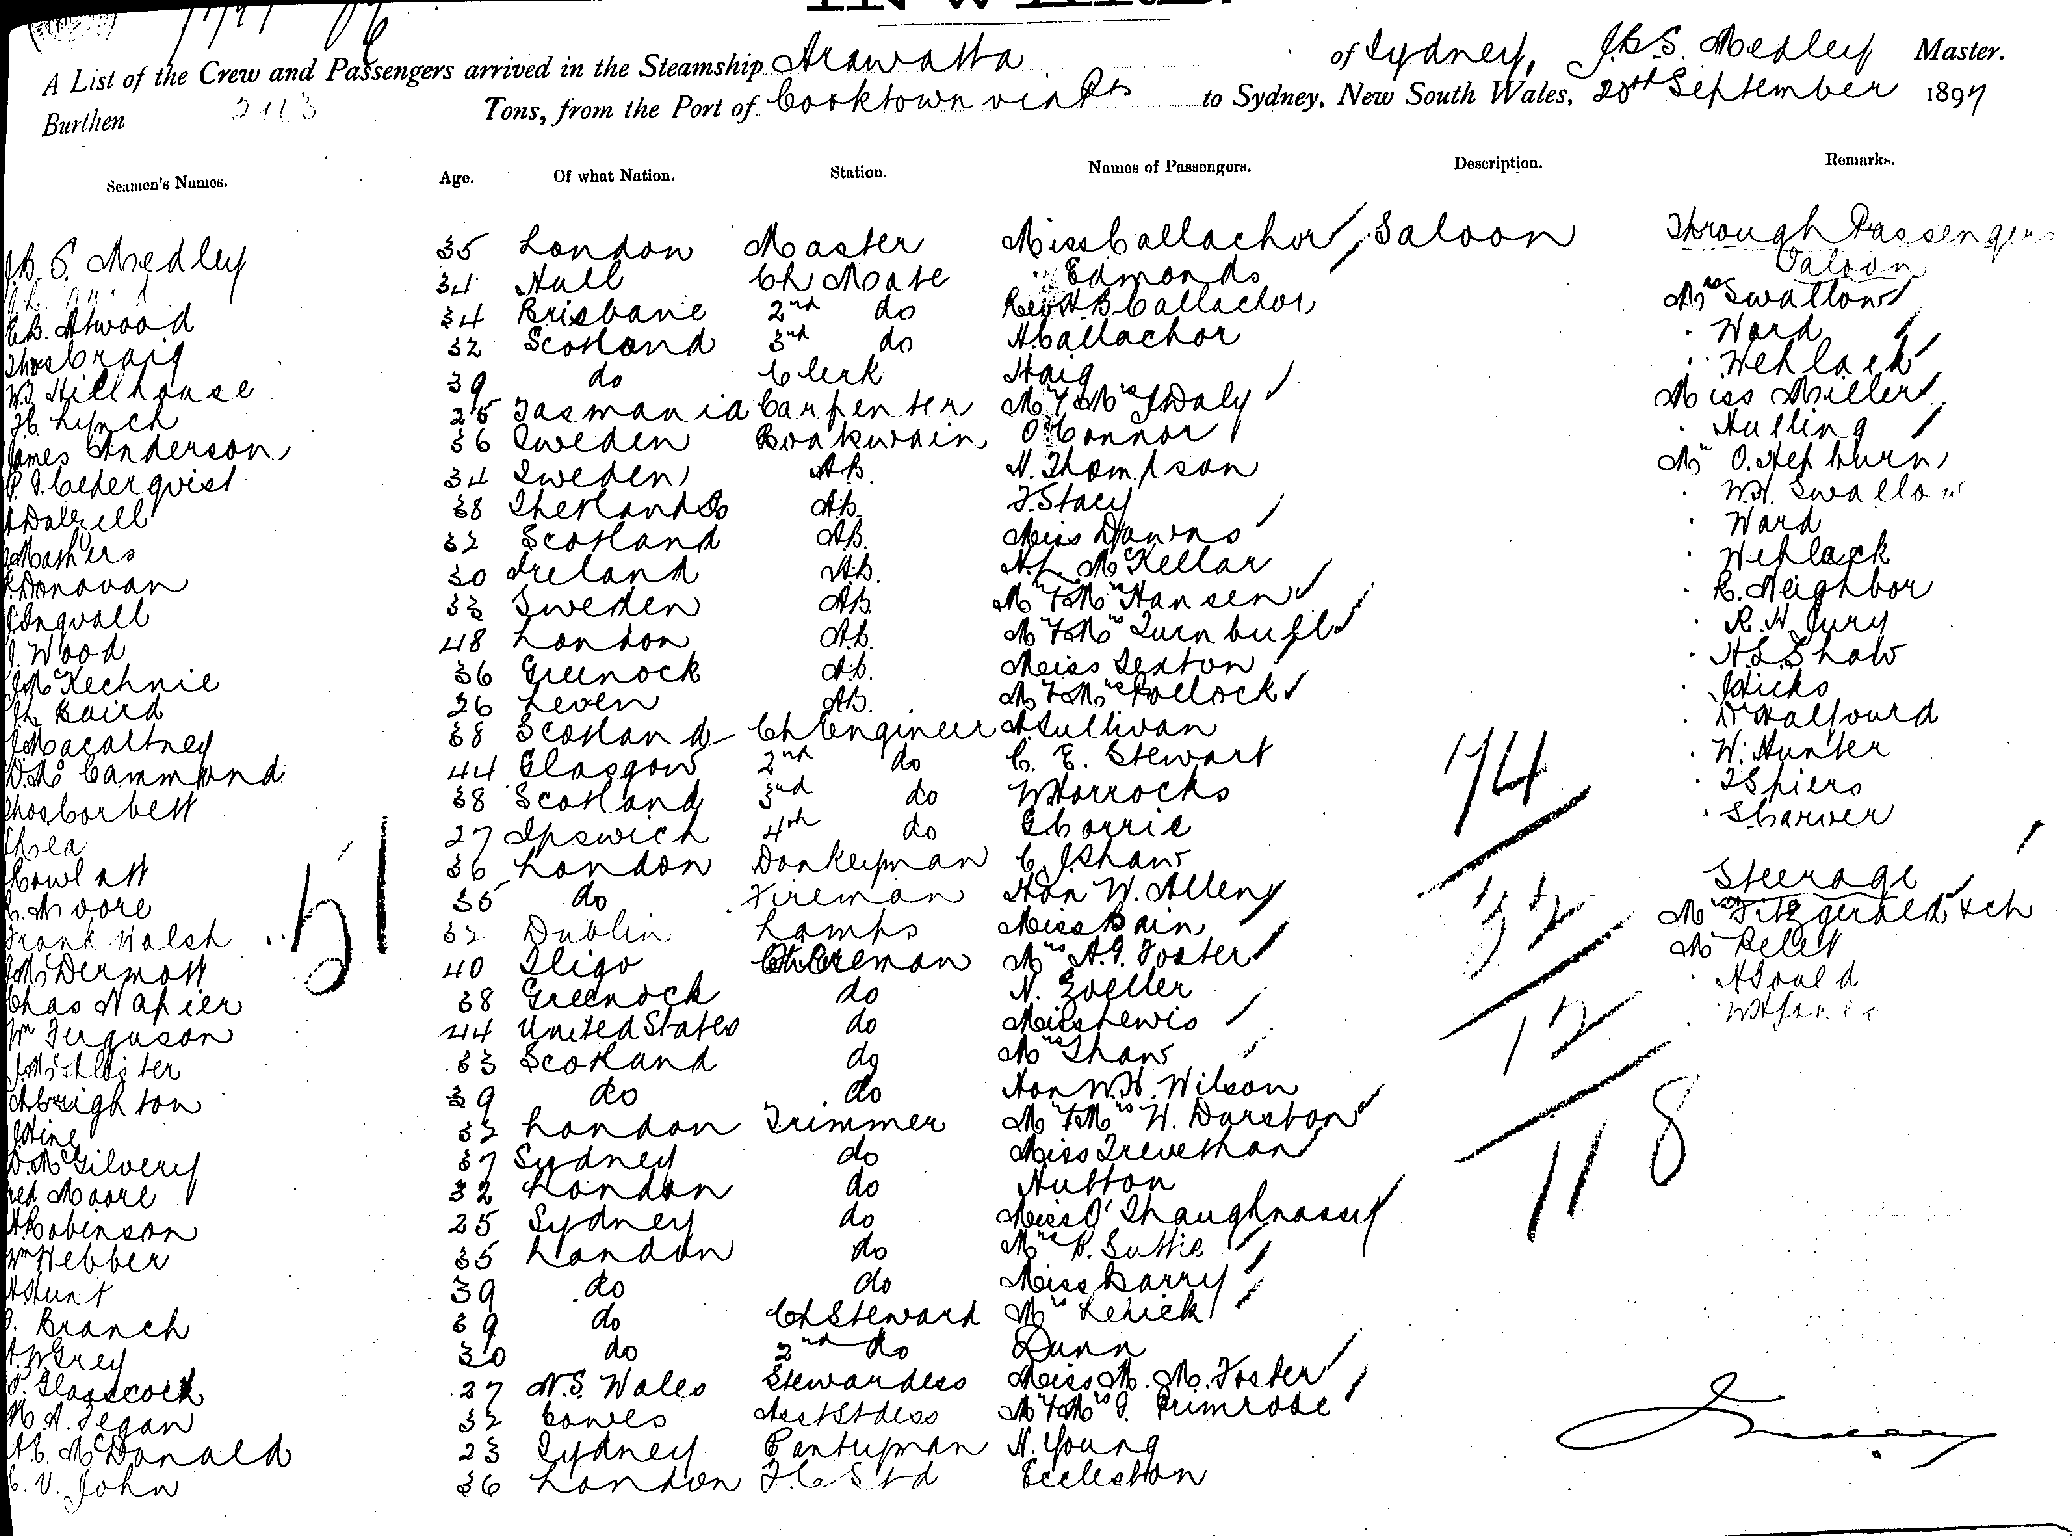 INWARD.
A List of the Crew and Passengers arrived in the Steamship Arawatta of Sydney, J.B.S. Medley Master.
Burthen 2113 Tons, from the Port of Cooktown via Pts to Sydney, New South Wales, 20th September 1897
Seamen's Names. Age. Of what Nation. Station. Names of Passengers. Description. Remarks.
J.B. S. Medley 35 London Master Miss Callachor Saloon Through Passengers
34 Hull Ch Mate Edmonds Saloon
E.B. Atwood 34 Brisbane 2nd do Rev H.B. Callachor Mrs Swallow
Thos Craig 32 Scotland 3rd do H Callachor Ward
W. Hillhouse 39 do Clerk Haig Wehlack
H. Lynch 25 Tasmania Carpenter Mr & Mrs J Daly Miss Miller
James Anderson 36 Sweden Boatswain O'Connor Hulling
P. J. Cederqvist 34 Sweden AB. N. Thompson Mr O. Hepburn
Dalzell 38 Shetland Is AB. T. Stacy W.H. Swallow
Mathers 32 Scotland AB. Miss Downs Ward
Donovan 30 Ireland AB. H.L. McKellar Wehlack
Engvall 33 Sweden AB. Mr & Mrs Hansen C. Neighbor
J. Wood 48 London AB. Mr & Mrs Turnbull R. H. Jury
J McKechnie 36 Greenock AB. Miss Sexton H.L. Shaw
Baird 26 Leven AB. Mr & Mrs Pollock J Hicks
J Macartney 38 Scotland Ch Engineer H Sullivan Dr Halfourd
D. McCammond 44 Glasgow 2nd do C. E. Stewart W. Hunter
Thos Corbett 38 Scotland 3rd do W Horrocks J Spiers
Shea 27 Ipswich 4th do G Corrie S Carver
Cowlatt 36 London Donkeyman C. J. Shaw
Moore 35 do Fireman Hon W. Allen Steerage
Frank Walsh 32 Dublin Lamps Miss Bain Mrs Fitzgerald & ch
J McDermott 40 Sligo Fireman Mrs A.J. Foster Mr Pelet
Chas Napier 38 Greenock do N. Zoeller H Gould
Wm Ferguson 44 United States do Miss Lewis W H Jones
J McAlister 33 Scotland do Mrs Shaw
A Creighton 39 do do Hon W.H. Wilson
J Hine 32 London Trimmer Mr & Mrs W. Durston
D. McGilvery 37 Sydney do Miss Trevethan
Fred Moore 32 London do Hutton
H Robinson 25 Sydney do Miss O'Shaughnassy
Wm Webber 35 London do Mrs P. Suttie
H Hunt 39 do do Miss Barry
J. Branch 39 do Ch Steward Mrs Lerick
A. W Grey 30 do 2nd do Dunn
Glasscock 27 N.S. Wales Stewardess Miss M. M. Foster
H. A. Fegan 32 Cowes Asst Stdess Mr & Mrs J. Primrose
A.C. McDonald 23 Sydney Pantryman H. Young
C. V. John 36 London F C Std Eccleston
51
74
32
12
118